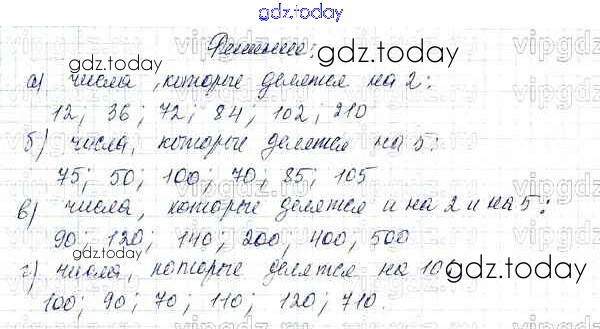 gdz.today
Решение:
а) числа, которые делятся на 2:
12; 36; 72; 84; 102; 210
б) числа, которые делятся на 5:
75; 50; 100; 70; 85; 105
в) числа, которые делятся и на 2 и на 5:
90; 120; 140; 200; 400; 500
г) числа, которые делятся на 10
100; 90; 70; 110; 120; 710.
gdz.today
gdz.today
gdz.today
gdz.today